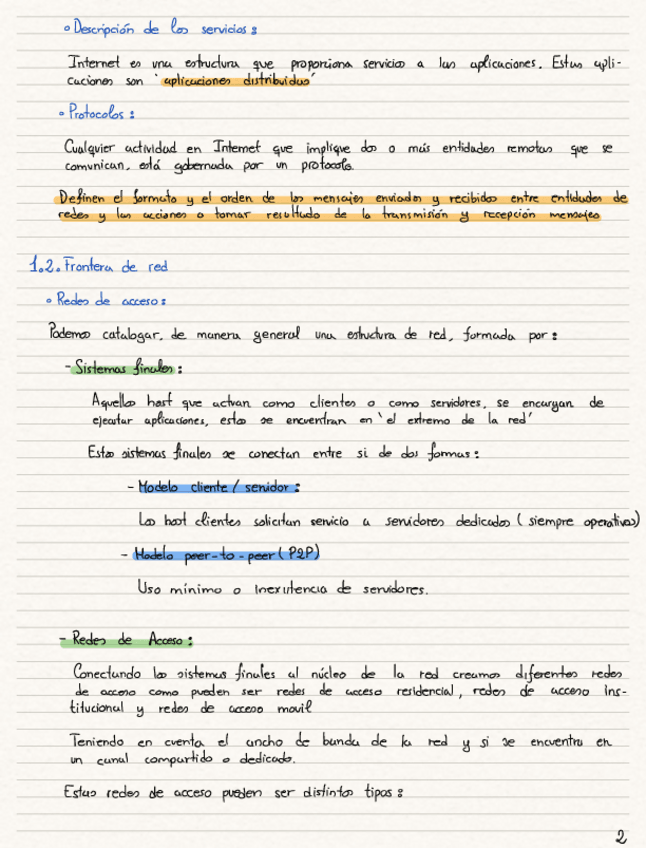 ◦ Descripción de los servicios:
Internet es una estructura que proporciona servicio a las aplicaciones. Estas apli-
caciones son 'aplicaciones distribuidas'
◦ Protocolos:
Cualquier actividad en Internet que implique dos o más entidades remotas que se
comunican, está gobernada por un protocolo.
Definen el formato y el orden de los mensajes enviados y recibidos entre entidades de
redes y las acciones a tomar resultado de la transmisión y recepción mensajes
1.2. Frontera de red
◦ Redes de acceso:
Podemos catalogar, de manera general una estructura de red, formada por:
- Sistemas finales:
Aquellos host que actuan como clientes o como servidores, se encargan de
ejecutar aplicaciones, estos se encuentran en 'el extremo de la red'
Estos sistemas finales se conectan entre si de dos formas:
- Modelo cliente / servidor:
Los host clientes solicitan servicio a servidores dedicados (siempre operativos)
- Modelo peer-to-peer (P2P)
Uso mínimo o inexistencia de servidores.
- Redes de Acceso:
Conectando los sistemas finales al núcleo de la red creamos diferentes redes
de acceso como pueden ser redes de acceso residencial, redes de acceso ins-
titucional y redes de acceso movil
Teniendo en cuenta el ancho de banda de la red y si se encuentra en
un canal compartido o dedicado.
Estas redes de acceso pueden ser distintos tipos:
2